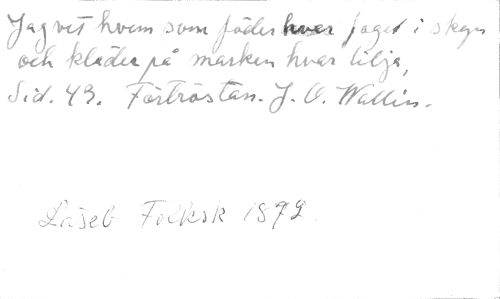 Jag vet hvem som föder hvar fogel i skyn
och kläder på marken hvar lilja,
Sid. 43. Förtröstan. J. O. Wallin.
Läseb Folksk 1892